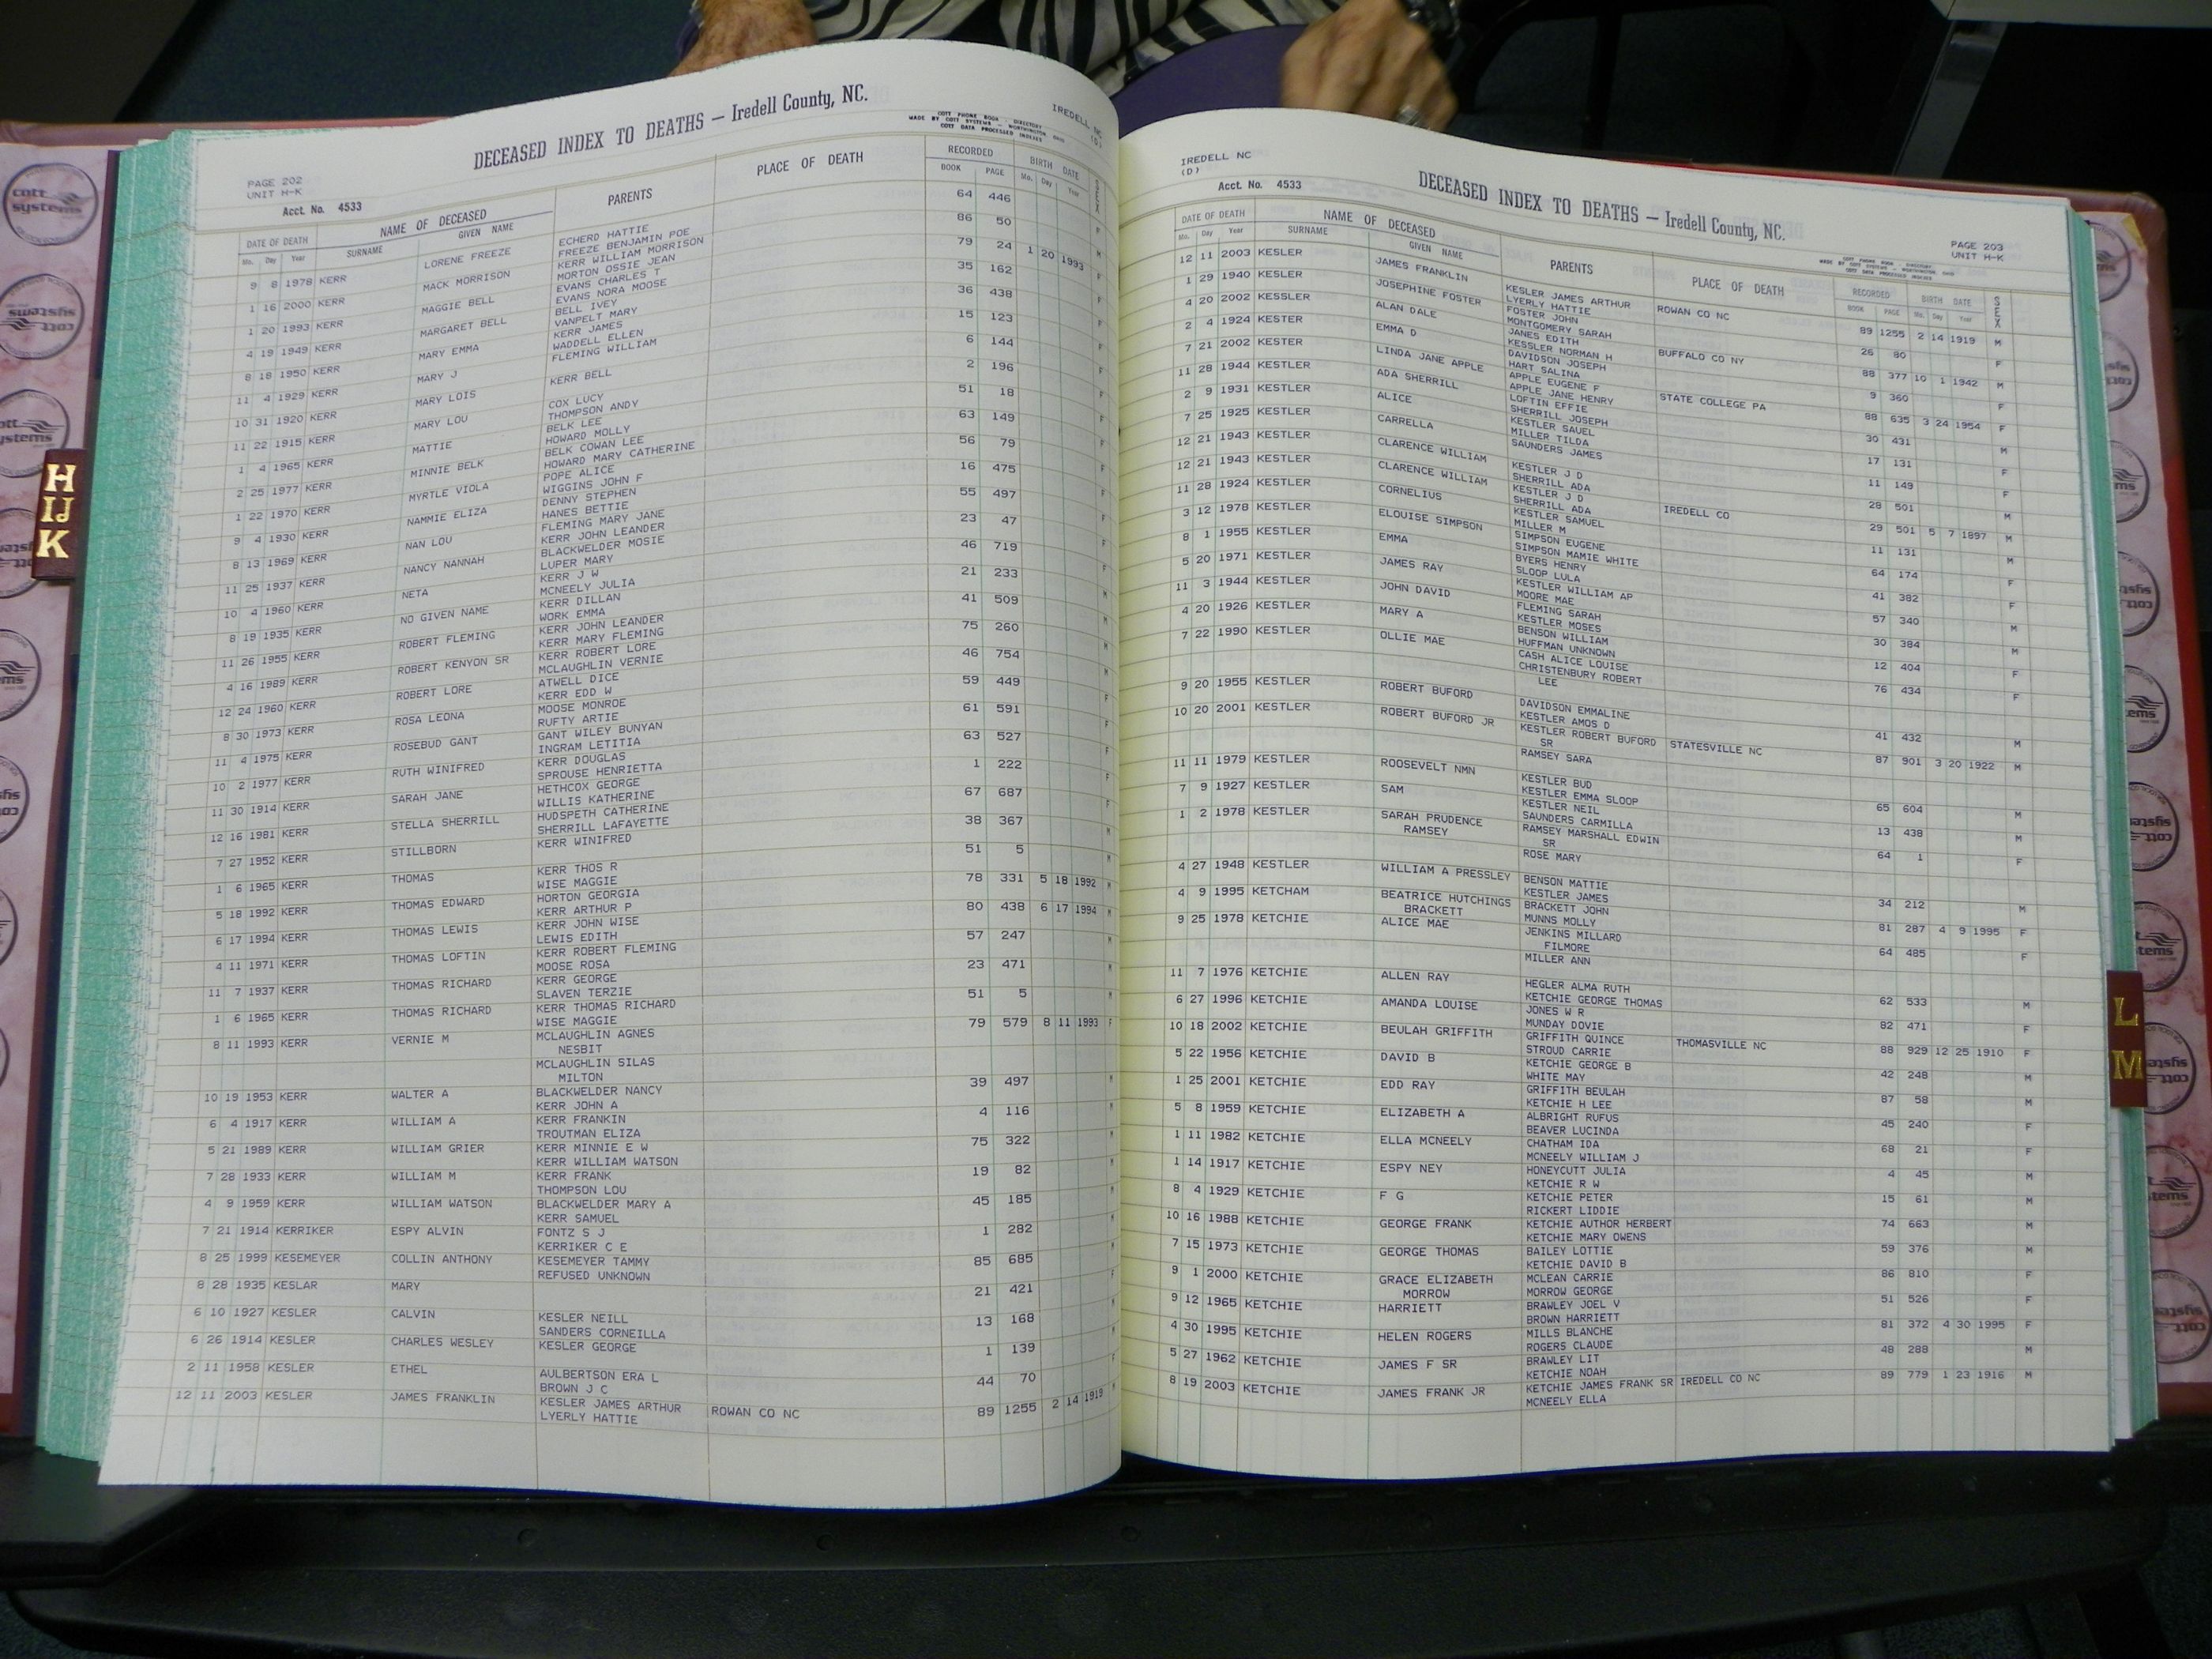 DECEASED INDEX TO DEATHS — Iredell County, NC.
PAGE 202
UNIT H-K
Acct. No. 4533
COTT PHONE BOOK - DIRECTORY
MADE BY COTT SYSTEMS - WORTHINGTON, OHIO
COTT DATA PROCESSED INDEXES
IREDELL NC
(D)
DATE OF DEATH NAME OF DECEASED PARENTS PLACE OF DEATH RECORDED BIRTH DATE SEX
Mo. Day Year SURNAME GIVEN NAME BOOK PAGE Mo. Day Year
9 8 1978 KERR LORENE FREEZE ECHERD HATTIE 64 446 F
FREEZE BENJAMIN POE
1 16 2000 KERR MACK MORRISON KERR WILLIAM MORRISON 86 50 M
MORTON OSSIE JEAN
1 20 1993 KERR MAGGIE BELL EVANS CHARLES T 79 24 1 20 1993 F
EVANS NORA MOOSE
4 19 1949 KERR MARGARET BELL BELL IVEY 35 162
VANPELT MARY
8 18 1950 KERR MARY EMMA KERR JAMES 36 438
WADDELL ELLEN
11 4 1929 KERR MARY J FLEMING WILLIAM 15 123
10 31 1920 KERR MARY LOIS KERR BELL 6 144
11 22 1915 KERR MARY LOU COX LUCY 2 196
THOMPSON ANDY
1 4 1965 KERR MATTIE BELK LEE 51 18
HOWARD MOLLY
2 25 1977 KERR MINNIE BELK BELK COWAN LEE 63 149
HOWARD MARY CATHERINE
1 22 1970 KERR MYRTLE VIOLA POPE ALICE 56 79
WIGGINS JOHN F
9 4 1930 KERR NAMMIE ELIZA DENNY STEPHEN 16 475
HANES BETTIE
8 13 1969 KERR NAN LOU FLEMING MARY JANE 55 497
KERR JOHN LEANDER
11 25 1937 KERR NANCY NANNAH BLACKWELDER MOSIE 23 47
LUPER MARY
10 4 1960 KERR NETA KERR J W 46 719
MCNEELY JULIA
8 19 1935 KERR NO GIVEN NAME KERR DILLAN 21 233
WORK EMMA
11 26 1955 KERR ROBERT FLEMING KERR JOHN LEANDER 41 509
KERR MARY FLEMING
4 16 1989 KERR ROBERT KENYON SR KERR ROBERT LORE 75 260
MCLAUGHLIN VERNIE
12 24 1960 KERR ROBERT LORE ATWELL DICE 46 754
KERR EDD W
8 30 1973 KERR ROSA LEONA MOOSE MONROE 59 449
RUFTY ARTIE
11 4 1975 KERR ROSEBUD GANT GANT WILEY BUNYAN 61 591
INGRAM LETITIA
10 2 1977 KERR RUTH WINIFRED KERR DOUGLAS 63 527
SPROUSE HENRIETTA
11 30 1914 KERR SARAH JANE HETHCOX GEORGE 1 222
WILLIS KATHERINE
12 16 1981 KERR STELLA SHERRILL HUDSPETH CATHERINE 67 687
SHERRILL LAFAYETTE
7 27 1952 KERR STILLBORN KERR WINIFRED 38 367
1 6 1965 KERR THOMAS KERR THOS R 51 5
WISE MAGGIE
5 18 1992 KERR THOMAS EDWARD HORTON GEORGIA 78 331 5 18 1992 M
KERR ARTHUR P
6 17 1994 KERR THOMAS LEWIS KERR JOHN WISE 80 438 6 17 1994 M
LEWIS EDITH
4 11 1971 KERR THOMAS LOFTIN KERR ROBERT FLEMING 57 247 M
MOOSE ROSA
11 7 1937 KERR THOMAS RICHARD KERR GEORGE 23 471 M
SLAVEN TERZIE
1 6 1965 KERR THOMAS RICHARD KERR THOMAS RICHARD 51 5 M
WISE MAGGIE
8 11 1993 KERR VERNIE M MCLAUGHLIN AGNES 79 579 8 11 1993 F
NESBIT
MCLAUGHLIN SILAS
MILTON
10 19 1953 KERR WALTER A BLACKWELDER NANCY 39 497 M
KERR JOHN A
6 4 1917 KERR WILLIAM A KERR FRANKIN 4 116 M
TROUTMAN ELIZA
5 21 1989 KERR WILLIAM GRIER KERR MINNIE E W 75 322 M
KERR WILLIAM WATSON
7 28 1933 KERR WILLIAM M KERR FRANK 19 82 M
THOMPSON LOU
4 9 1959 KERR WILLIAM WATSON BLACKWELDER MARY A 45 185 M
KERR SAMUEL
7 21 1914 KERRIKER ESPY ALVIN FONTZ S J 1 282
KERRIKER C E
8 25 1999 KESEMEYER COLLIN ANTHONY KESEMEYER TAMMY 85 685 M
REFUSED UNKNOWN
8 28 1935 KESLAR MARY 21 421 F
6 10 1927 KESLER CALVIN KESLER NEILL 13 168 M
SANDERS CORNEILLA
6 26 1914 KESLER CHARLES WESLEY KESLER GEORGE 1 139 M
2 11 1958 KESLER ETHEL AULBERTSON ERA L 44 70 F
BROWN J C
12 11 2003 KESLER JAMES FRANKLIN KESLER JAMES ARTHUR ROWAN CO NC 89 1255 2 14 1919 M
LYERLY HATTIE
IREDELL NC
(D)
Acct. No. 4533
DECEASED INDEX TO DEATHS — Iredell County, NC.
COTT PHONE BOOK - DIRECTORY
MADE BY COTT SYSTEMS - WORTHINGTON, OHIO
COTT DATA PROCESSED INDEXES
PAGE 203
UNIT H-K
DATE OF DEATH NAME OF DECEASED PARENTS PLACE OF DEATH RECORDED BIRTH DATE SEX
Mo. Day Year SURNAME GIVEN NAME BOOK PAGE Mo. Day Year
12 11 2003 KESLER JAMES FRANKLIN KESLER JAMES ARTHUR ROWAN CO NC 89 1255 2 14 1919 M
LYERLY HATTIE
1 29 1940 KESLER JOSEPHINE FOSTER FOSTER JOHN 26 80 F
MONTGOMERY SARAH
4 20 2002 KESSLER ALAN DALE JANES EDITH BUFFALO CO NY 88 377 10 1 1942 M
KESSLER NORMAN H
2 4 1924 KESTER EMMA D DAVIDSON JOSEPH 9 360 F
HART SALINA
7 21 2002 KESTER LINDA JANE APPLE APPLE EUGENE F STATE COLLEGE PA 88 635 3 24 1954 F
APPLE JANE HENRY
11 28 1944 KESTLER ADA SHERRILL LOFTIN EFFIE 30 431 M
SHERRILL JOSEPH
2 9 1931 KESTLER ALICE KESTLER SAUEL 17 131 F
MILLER TILDA
7 25 1925 KESTLER CARRELLA SAUNDERS JAMES 11 149 F
12 21 1943 KESTLER CLARENCE WILLIAM KESTLER J D 28 501 M
SHERRILL ADA
12 21 1943 KESTLER CLARENCE WILLIAM KESTLER J D IREDELL CO 29 501 5 7 1897 M
SHERRILL ADA
11 28 1924 KESTLER CORNELIUS KESTLER SAMUEL 11 131 M
MILLER M
3 12 1978 KESTLER ELOUISE SIMPSON SIMPSON EUGENE 64 174 F
SIMPSON MAMIE WHITE
8 1 1955 KESTLER EMMA BYERS HENRY 41 382 F
SLOOP LULA
5 20 1971 KESTLER JAMES RAY KESTLER WILLIAM AP 57 340 M
MOORE MAE
11 3 1944 KESTLER JOHN DAVID FLEMING SARAH 30 384 M
KESTLER MOSES
4 20 1926 KESTLER MARY A BENSON WILLIAM 12 404 F
HUFFMAN UNKNOWN
7 22 1990 KESTLER OLLIE MAE CASH ALICE LOUISE 76 434 F
CHRISTENBURY ROBERT
LEE
9 20 1955 KESTLER ROBERT BUFORD DAVIDSON EMMALINE 41 432 M
KESTLER AMOS D
10 20 2001 KESTLER ROBERT BUFORD JR KESTLER ROBERT BUFORD STATESVILLE NC 87 901 3 20 1922 M
SR
RAMSEY SARA
11 11 1979 KESTLER ROOSEVELT NMN KESTLER BUD 65 604 M
KESTLER EMMA SLOOP
7 9 1927 KESTLER SAM KESTLER NEIL 13 438 M
SAUNDERS CARMILLA
1 2 1978 KESTLER SARAH PRUDENCE RAMSEY MARSHALL EDWIN 64 1 F
RAMSEY SR
ROSE MARY
4 27 1948 KESTLER WILLIAM A PRESSLEY BENSON MATTIE 34 212 M
KESTLER JAMES
4 9 1995 KETCHAM BEATRICE HUTCHINGS BRACKETT JOHN 81 287 4 9 1995 F
BRACKETT MUNNS MOLLY
9 25 1978 KETCHIE ALICE MAE JENKINS MILLARD 64 485 F
FILMORE
MILLER ANN
11 7 1976 KETCHIE ALLEN RAY HEGLER ALMA RUTH 62 533 M
KETCHIE GEORGE THOMAS
6 27 1996 KETCHIE AMANDA LOUISE JONES W R 82 471 F
MUNDAY DOVIE
10 18 2002 KETCHIE BEULAH GRIFFITH GRIFFITH QUINCE THOMASVILLE NC 88 929 12 25 1910 F
STROUD CARRIE
5 22 1956 KETCHIE DAVID B KETCHIE GEORGE B 42 248 M
WHITE MAY
1 25 2001 KETCHIE EDD RAY GRIFFITH BEULAH 87 58 M
KETCHIE H LEE
5 8 1959 KETCHIE ELIZABETH A ALBRIGHT RUFUS 45 240 F
BEAVER LUCINDA
1 11 1982 KETCHIE ELLA MCNEELY CHATHAM IDA 68 21 F
MCNEELY WILLIAM J
1 14 1917 KETCHIE ESPY NEY HONEYCUTT JULIA 4 45 M
KETCHIE R W
8 4 1929 KETCHIE F G KETCHIE PETER 15 61 M
RICKERT LIDDIE
10 16 1988 KETCHIE GEORGE FRANK KETCHIE AUTHOR HERBERT 74 663 M
KETCHIE MARY OWENS
7 15 1973 KETCHIE GEORGE THOMAS BAILEY LOTTIE 59 376 M
KETCHIE DAVID B
9 1 2000 KETCHIE GRACE ELIZABETH MCLEAN CARRIE 86 810 F
MORROW MORROW GEORGE
9 12 1965 KETCHIE HARRIETT BRAWLEY JOEL V 51 526 F
BROWN HARRIETT
4 30 1995 KETCHIE HELEN ROGERS MILLS BLANCHE 81 372 4 30 1995 F
ROGERS CLAUDE
5 27 1962 KETCHIE JAMES F SR BRAWLEY LIT 48 288 M
KETCHIE NOAH
8 19 2003 KETCHIE JAMES FRANK JR KETCHIE JAMES FRANK SR IREDELL CO NC 89 779 1 23 1916 M
MCNEELY ELLA
H
IJ
K
L
M
cott
systems